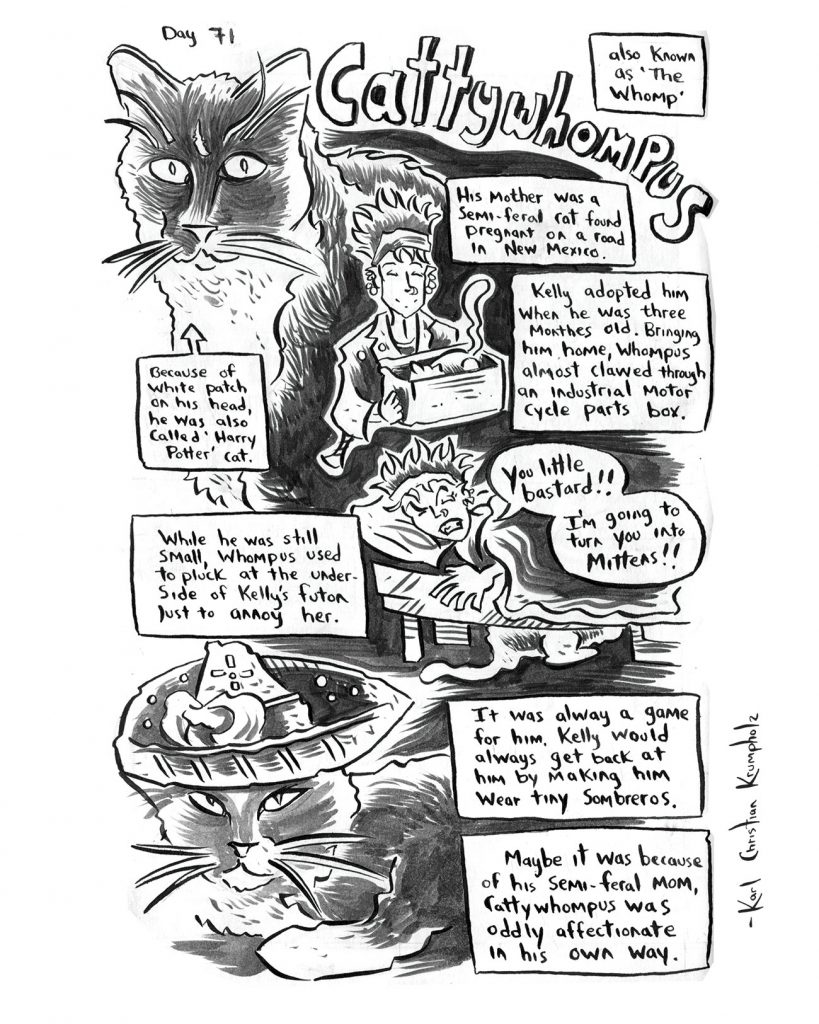 Day 71
Cattywhompus
also known
as 'The
Whomp'
His Mother was a
Semi-feral cat found
pregnant on a road
in New Mexico.
Kelly adopted him
when he was three
Monthes old. Bringing
him home, Whompus
almost clawed through
an industrial Motor
Cycle parts box.
Because of
white patch
on his head,
he was also
Called 'Harry
Potter' cat.
You little
bastard!!
I'm going to
turn you into
Mittens!!
While he was still
Small, Whompus used
to pluck at the under-
Side of Kelly's futon
Just to annoy her.
It was alway a game
for him. Kelly would
always get back at
him by Making him
wear tiny Sombreros.
Maybe it was because
of his Semi-feral Mom,
Cattywhompus was
oddly affectionate
in his own way.
- Karl Christian Krumpholz